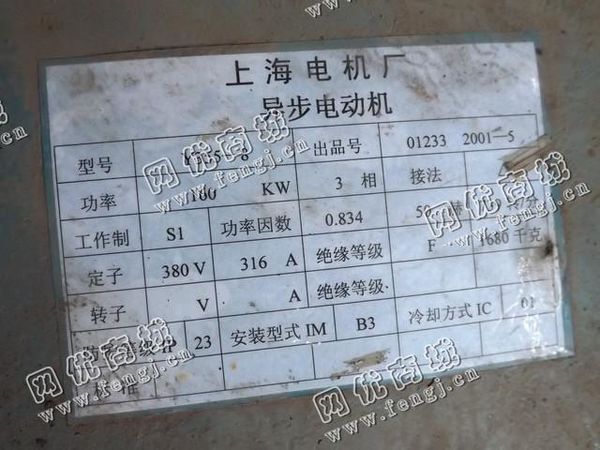 上海电机厂
异步电动机
型号 出品号 01233 2001-5
功率 160 KW 3 相 接法
工作制 S1 功率因数 0.834 50
定子 380 V 316 A 绝缘等级 F 1680 千克
转子 V A 绝缘等级
等级 IP 23 安装型式 IM B3 冷却方式 IC 01
网优商城
www.fengj.cn
网优商城
www.fengj.cn
网优商城
www.fengj.cn
网优商城
www.fengj.cn